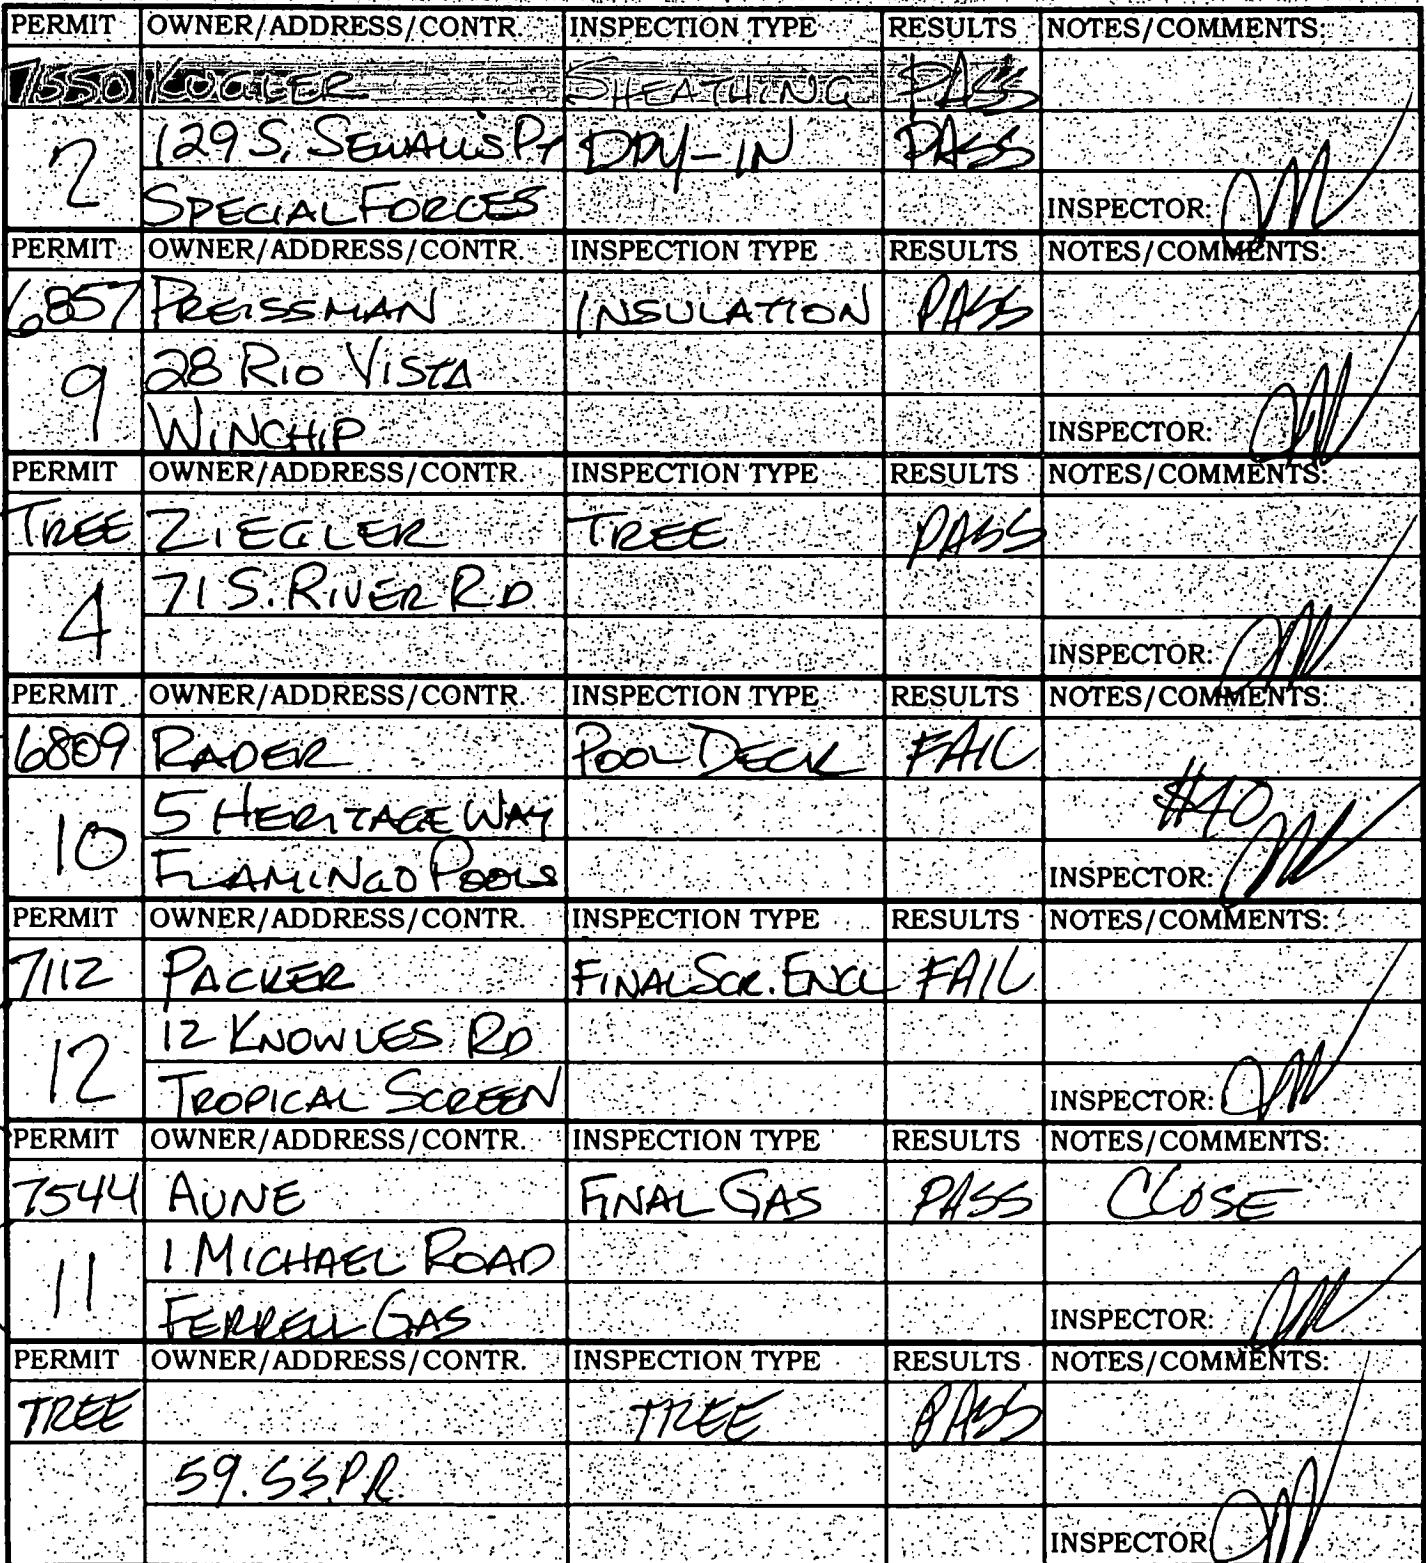 PERMIT OWNER/ADDRESS/CONTR. INSPECTION TYPE RESULTS NOTES/COMMENTS:
7550 KUGLER SHEATHING PASS
2 129 S. SEWALL'S PT DRY-IN PASS
SPECIAL FORCES INSPECTOR:
PERMIT OWNER/ADDRESS/CONTR. INSPECTION TYPE RESULTS NOTES/COMMENTS:
6857 PREISSMAN INSULATION PASS
9 28 RIO VISTA
WINCHIP INSPECTOR:
PERMIT OWNER/ADDRESS/CONTR. INSPECTION TYPE RESULTS NOTES/COMMENTS:
TREE ZIEGLER TREE PASS
4 71 S. RIVER RD
INSPECTOR:
PERMIT OWNER/ADDRESS/CONTR. INSPECTION TYPE RESULTS NOTES/COMMENTS:
6809 RADER POOL DECK FAIL
10 5 HERITAGE WAY $40
FLAMINGO POOLS INSPECTOR:
PERMIT OWNER/ADDRESS/CONTR. INSPECTION TYPE RESULTS NOTES/COMMENTS:
7112 PACKER FINAL SCR. ENCL FAIL
12 12 KNOWLES RD
TROPICAL SCREEN INSPECTOR:
PERMIT OWNER/ADDRESS/CONTR. INSPECTION TYPE RESULTS NOTES/COMMENTS:
7544 AUNE FINAL GAS PASS CLOSE
11 1 MICHAEL ROAD
FERRELL GAS INSPECTOR:
PERMIT OWNER/ADDRESS/CONTR. INSPECTION TYPE RESULTS NOTES/COMMENTS:
TREE TREE PASS
59. S.S.P.R.
INSPECTOR